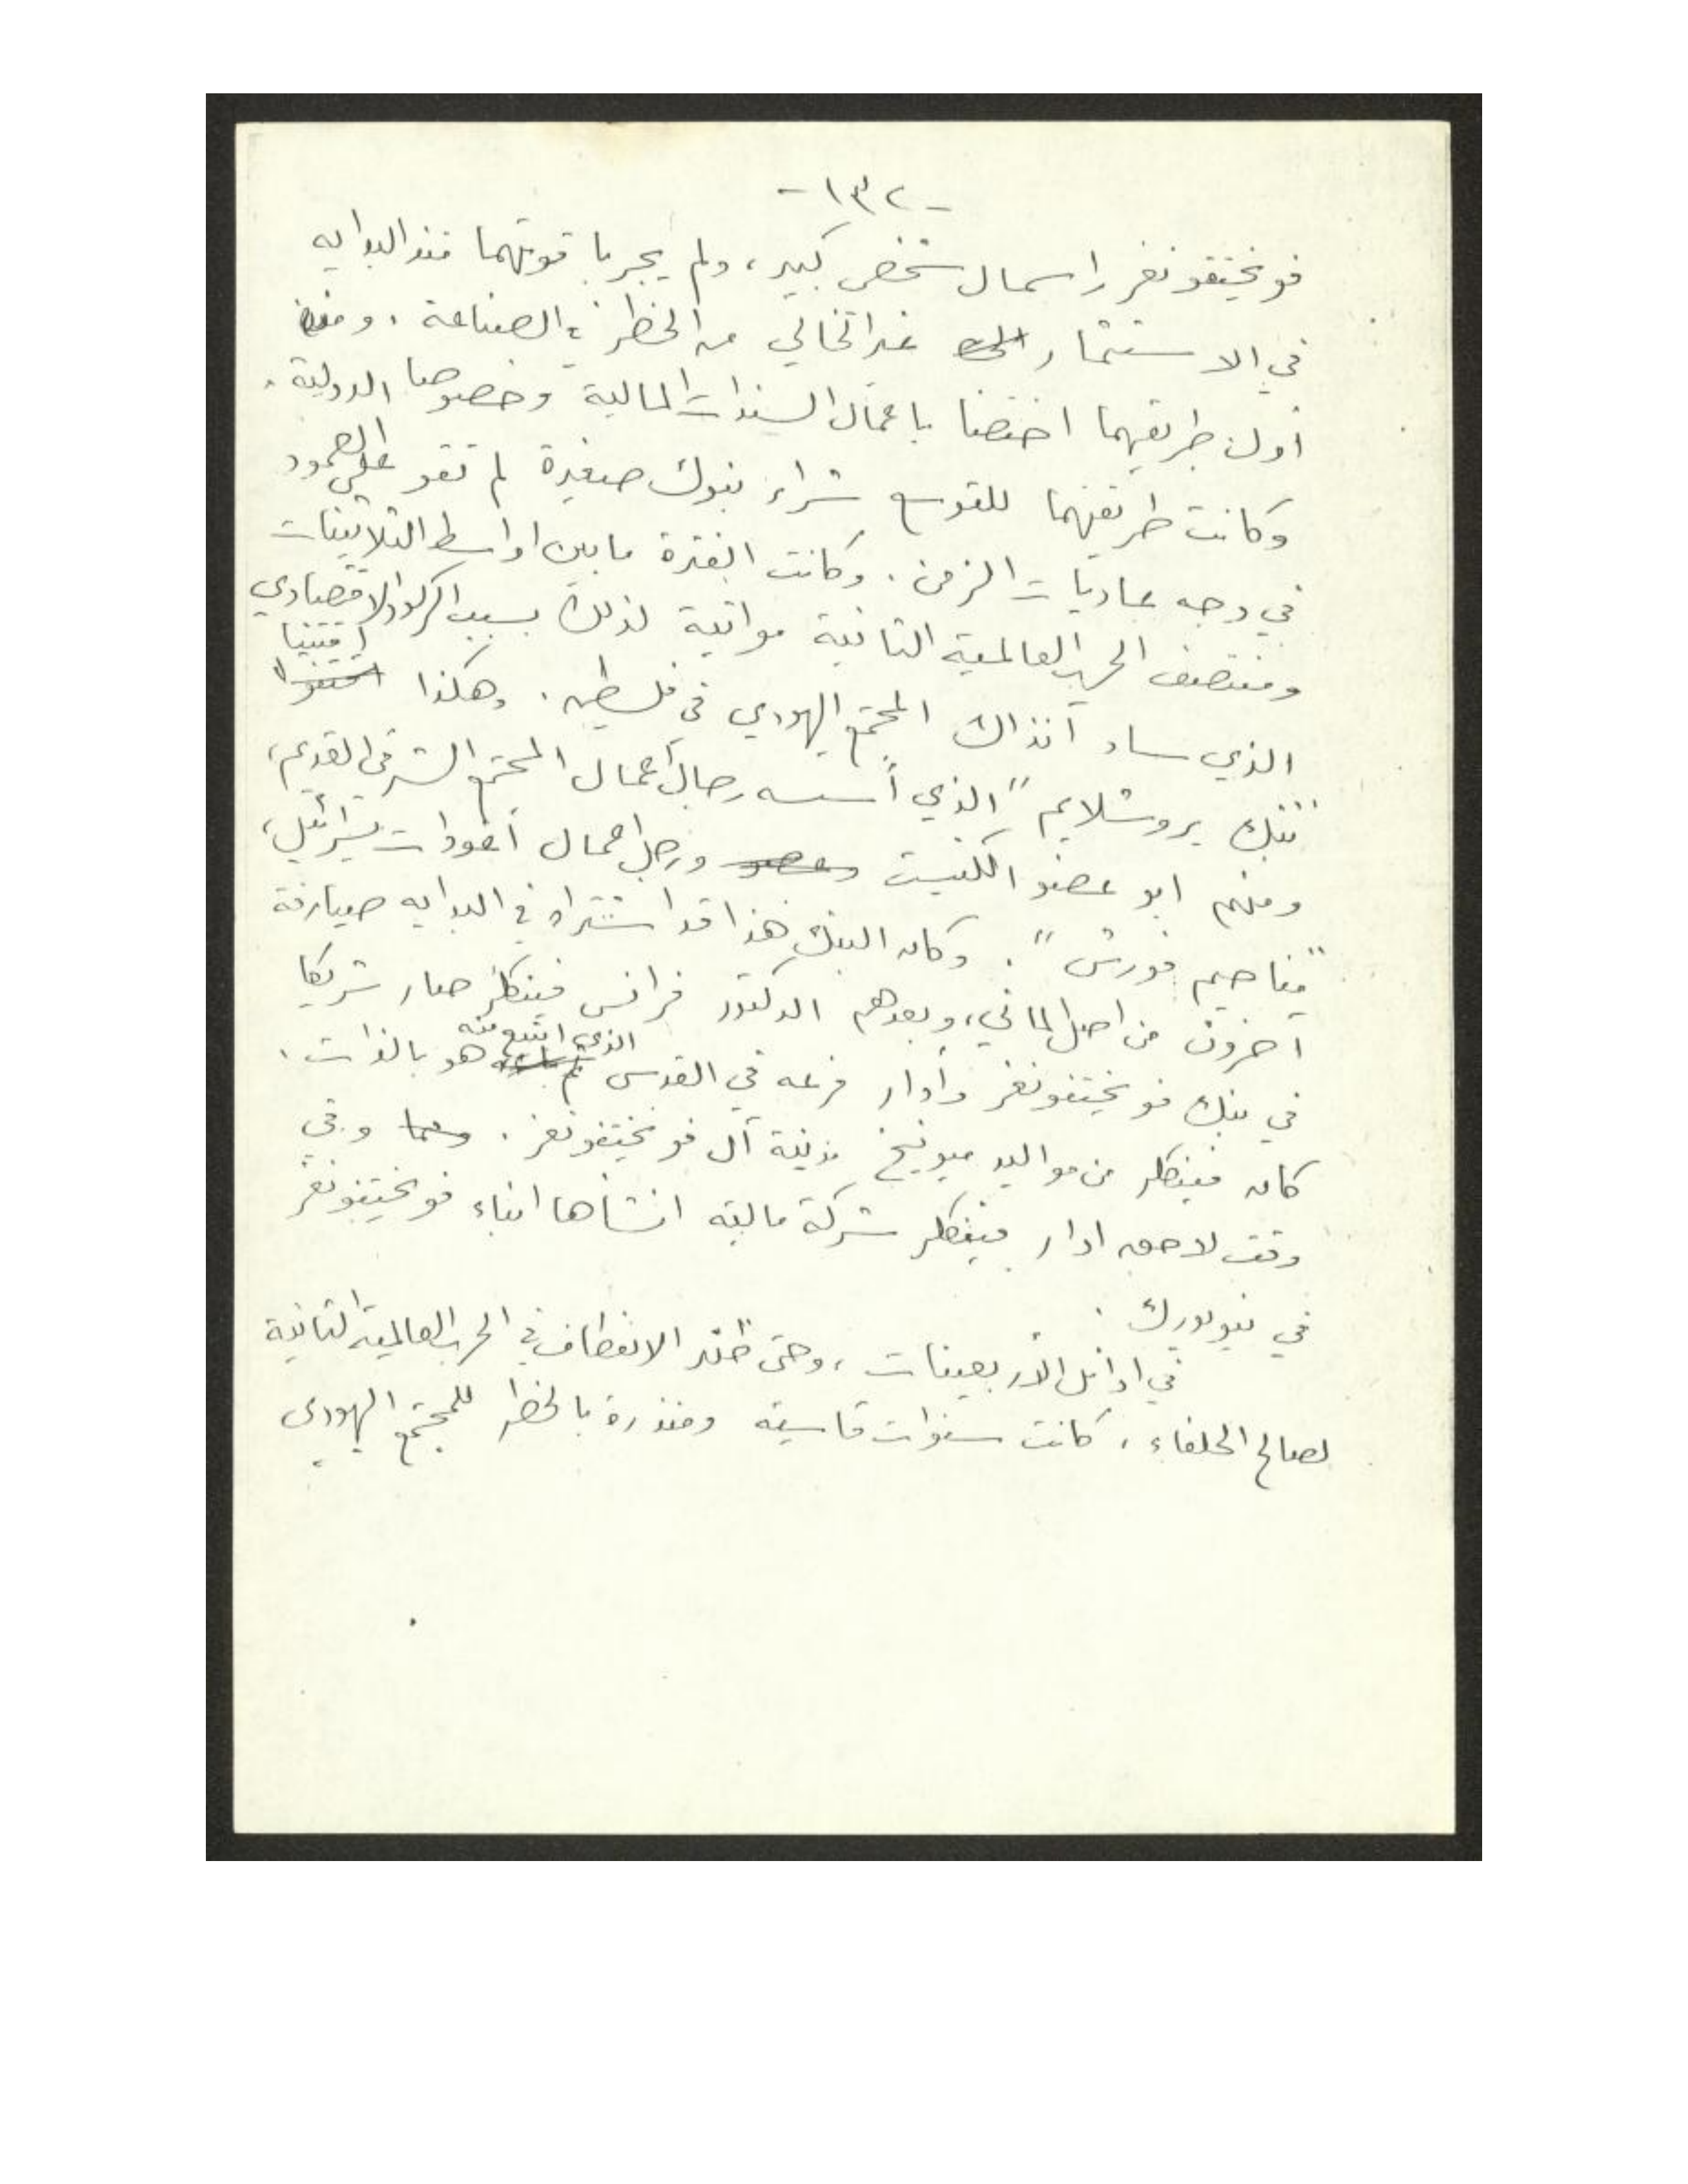 -١٣٢-
فويختفونغر راسمال شخصي كبير، ولم يجربا قوتهما منذ البدايه
في الاستثمار غير الخالي من الخطر في الصناعة. ومنذ
اول طريقهما اختصا باعمال السندات المالية وخصوصا الدولية.
وكانت طريقتهما للتوسع شراء بنوك صغيرة لم تقو على الصمود
في وجه عاديات الزمن. وكانت الفترة ما بين اواسط الثلاثينات
ومنتصف الحرب العالمية الثانية مواتية لذلك بسبب الركود الاقتصادي
الذي ساد آنذاك المجتمع اليهودي في فلسطين. وهكذا اقتنيا
"بنك يروشلايم" الذي أسسه رجال أعمال المجتمع الشرقي القديم،
ومنهم ابو عضو الكنيست ورجل اعمال أغودات يسرائيل،
"مناحيم فورش". وكان البنك هذا قد اشتراه في البدايه صيارفة
آخرون من اصل الماني، وبعدهم الدكتور فرانس فينكلر صار شريكا
في بنك فويختفونغر وأدار فرعه في القدس الذي ابتيع منه هو بالذات.
كان فينكلر من مواليد ميونيخ مدينة آل فويختفونغر. وفي
وقت لاحق ادار فينكلر شركة مالية انشأها ابناء فويختفونغر
في نيويورك.
في اوائل الأربعينات، وحتى الانعطاف في الحرب العالمية الثانية
لصالح الحلفاء، كانت سنوات قاسية ومنذرة بالخطر للمجتمع اليهودي